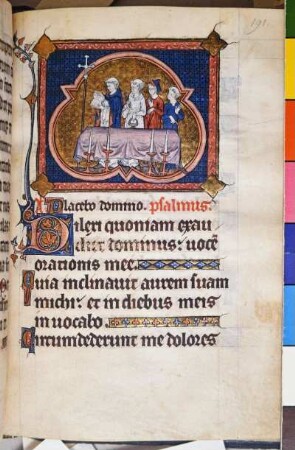 191.
Placebo domino. psalmus.
Dilexi quoniam exau
diet dominus: vocem
orationis mee.
Quia inclinavit aurem suam
michi: et in diebus meis
invocabo.
Circumdederunt me dolores